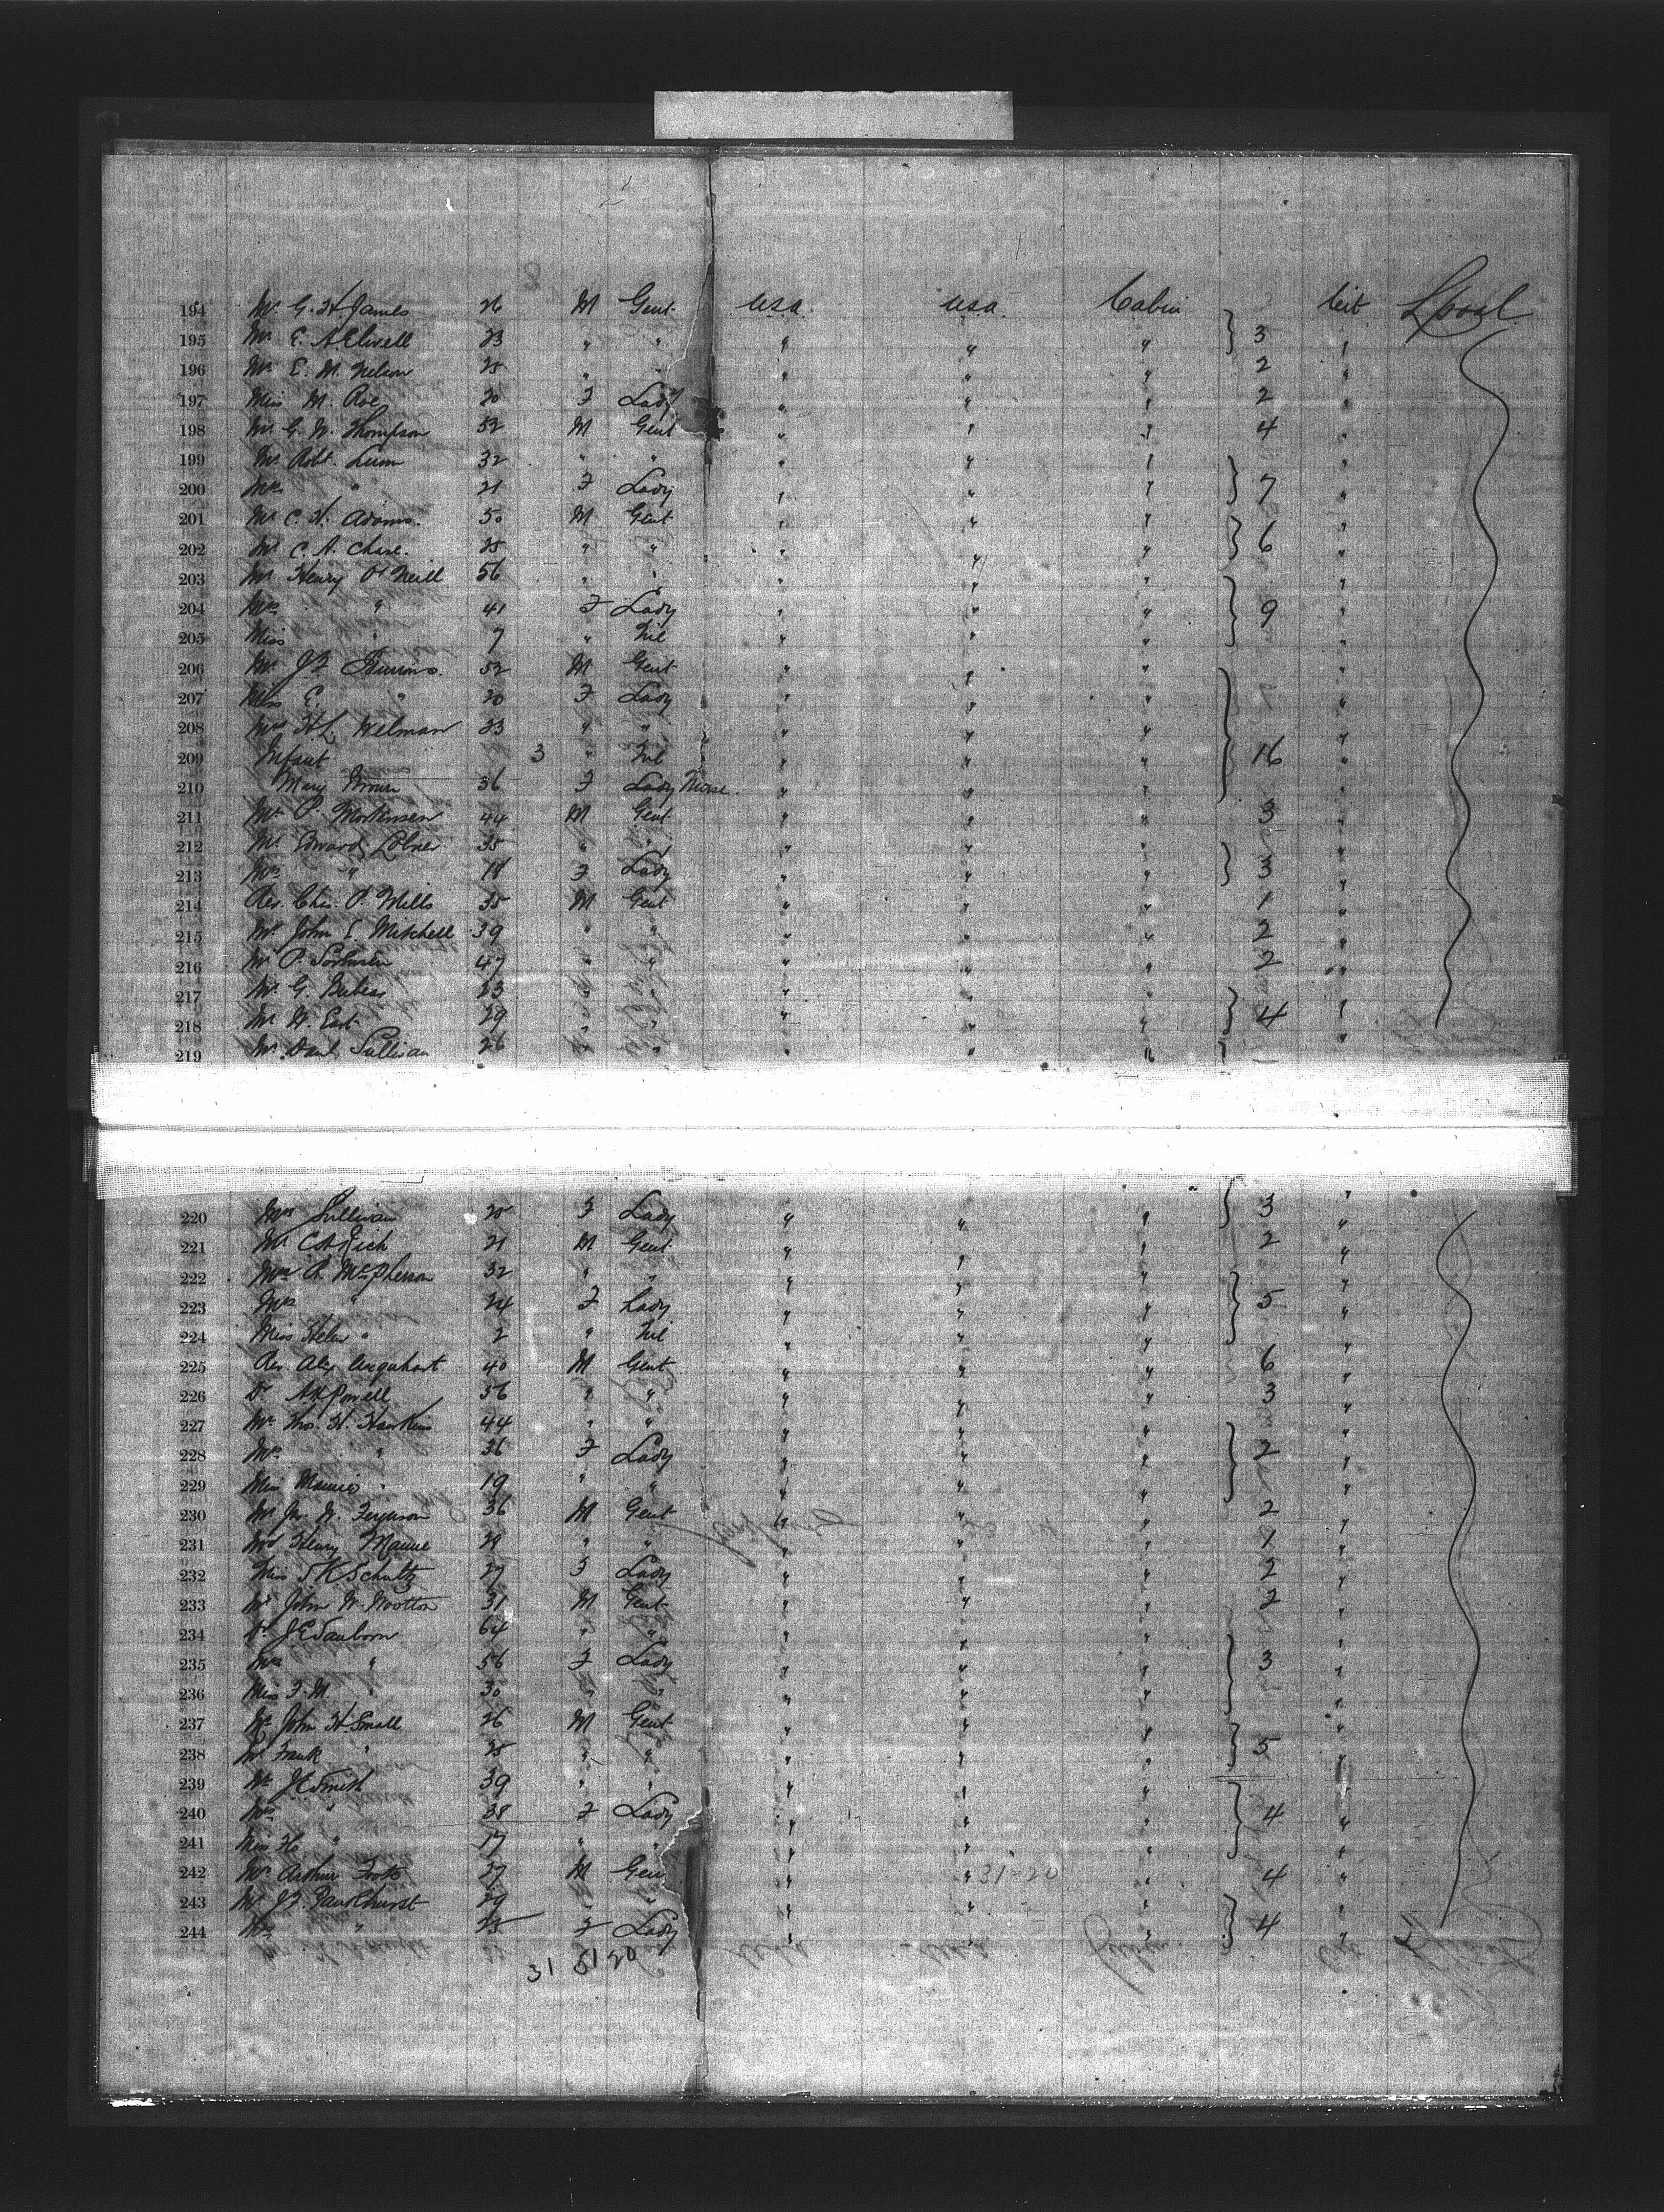 194 Mr. G. H. James 26 M Gent. U.S.A. U.S.A. Cabin Cit L'pool
195 Mr E. A. Elwell 23 " " " " " } 3 "
196 Mr E. M. Nelson 25 " " " " " 2 "
197 Miss M. Roe 20 F Lady " " " 2 "
198 Mr G. W. Thompson 52 M Gent " " " 4 "
199 Mr Robt. Lum 32 " " " " " "
200 Mrs " 21 F Lady " " " } 7 "
201 Mr C. H. Adams. 50 M Gent " " " "
202 Mr C. A. Chase. 25 " " " " " } 6 "
203 Mr Henry O'Neill 56 " " " " " "
204 Mrs " 41 F Lady " " " } 9 "
205 Miss " 7 " Nil " " " "
206 Mr J F 52 M Gent " " " "
207 Miss E. " 20 F Lady " " " "
208 Mrs H L. Welman 23 " " " " " "
209 Infant 3 " Nil " " " } 16 "
210 Mary Brown 36 F Lady Nurse. " " " "
211 Mr P. Mortensen 44 M Gent " " " 3 "
212 Mr Edward Lobner 35 " " " " " "
213 Mrs " 18 F Lady " " " } 3 "
214 Rev. Chs. P. Mills 35 M Gent " " " 1 "
215 Mr John E Mitchell 39 " " " " " 2 "
216 Mr P. 47 " " " " " 2 "
217 Mr G. 23 " " " " " "
218 Mr W. East 29 " " " " " } 4 "
219 Mr Danl Sullivan 26 " " " " "
220 Mrs Sullivan 25 F Lady " " " } 3 "
221 Mr C A Rich 21 M Gent " " " 2 "
222 R. McPherson 32 " " " " " "
223 Mrs " 24 F Lady " " " } 5 "
224 Miss Helen " 2 " Nil " " " "
225 Rev. Alex Urquhart 40 M Gent " " " 6 "
226 Dr A H Powell 56 " " " " " 3 "
227 Mr Thos. H. Hawkins 44 " " " " " "
228 Mrs " 36 F Lady " " " } 2 "
229 Miss Mamie " 19 " " " " " "
230 Mr Jno. W. Ferguson 36 M Gent " " " 2 "
231 Henry Maune " " " " " 1 "
232 Miss K Schultz 27 F Lady " " " 2 "
233 Mr John W. Wootton 31 M Gent " " " 2 "
234 Dr J E Sanborn 64 " " " " " "
235 Mrs " 56 F Lady " " " } 3 "
236 Miss F. M. " 30 " " " " " "
237 Mr John H Small 26 M Gent " " " "
238 Mr Frank " 25 " " " " " } 5 "
239 Mr J E Smith 39 " " " " " "
240 Mrs " 38 F Lady " " " } 4 "
241 Miss H. " 17 " " " " " "
242 Mr Arthur Foote 37 M Gen " " 31-20 " 4 "
243 Mr J F. Pankhurst 29 " " " " " "
244 Mrs " 25 F Lady " " " } 4 "
31 51 20